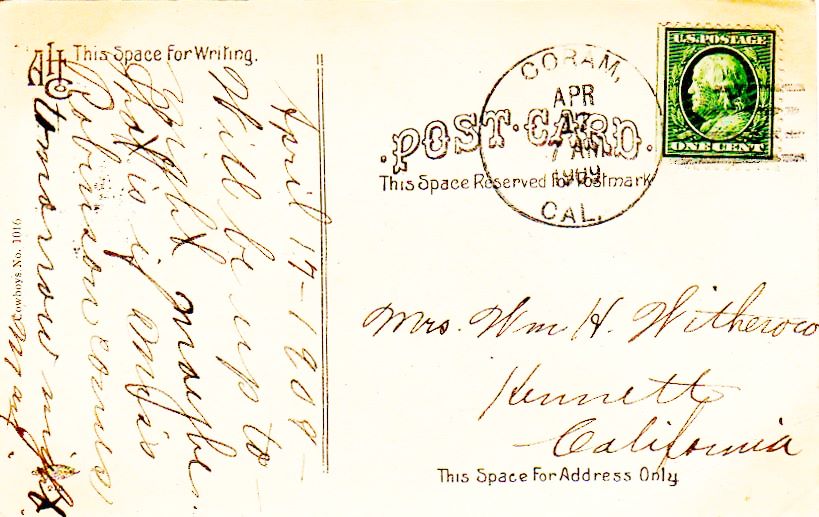 This Space For Writing.
April 17-1909-
Will be up to-
night maybe.
That is if
Robinson comes
tomorrow night
Cowboys. No. 1016
POST CARD.
This Space Reserved for Postmark
CORAM,
APR
17
7 AM
1909
CAL.
U.S. POSTAGE
ONE CENT
Mrs. Wm H. Witherow
Kennett
California
This Space For Address Only